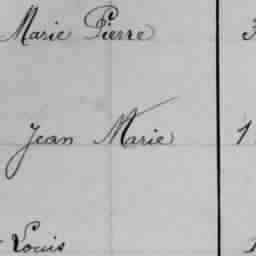 Marie Pierre 3
Jean Marie 1
Louis